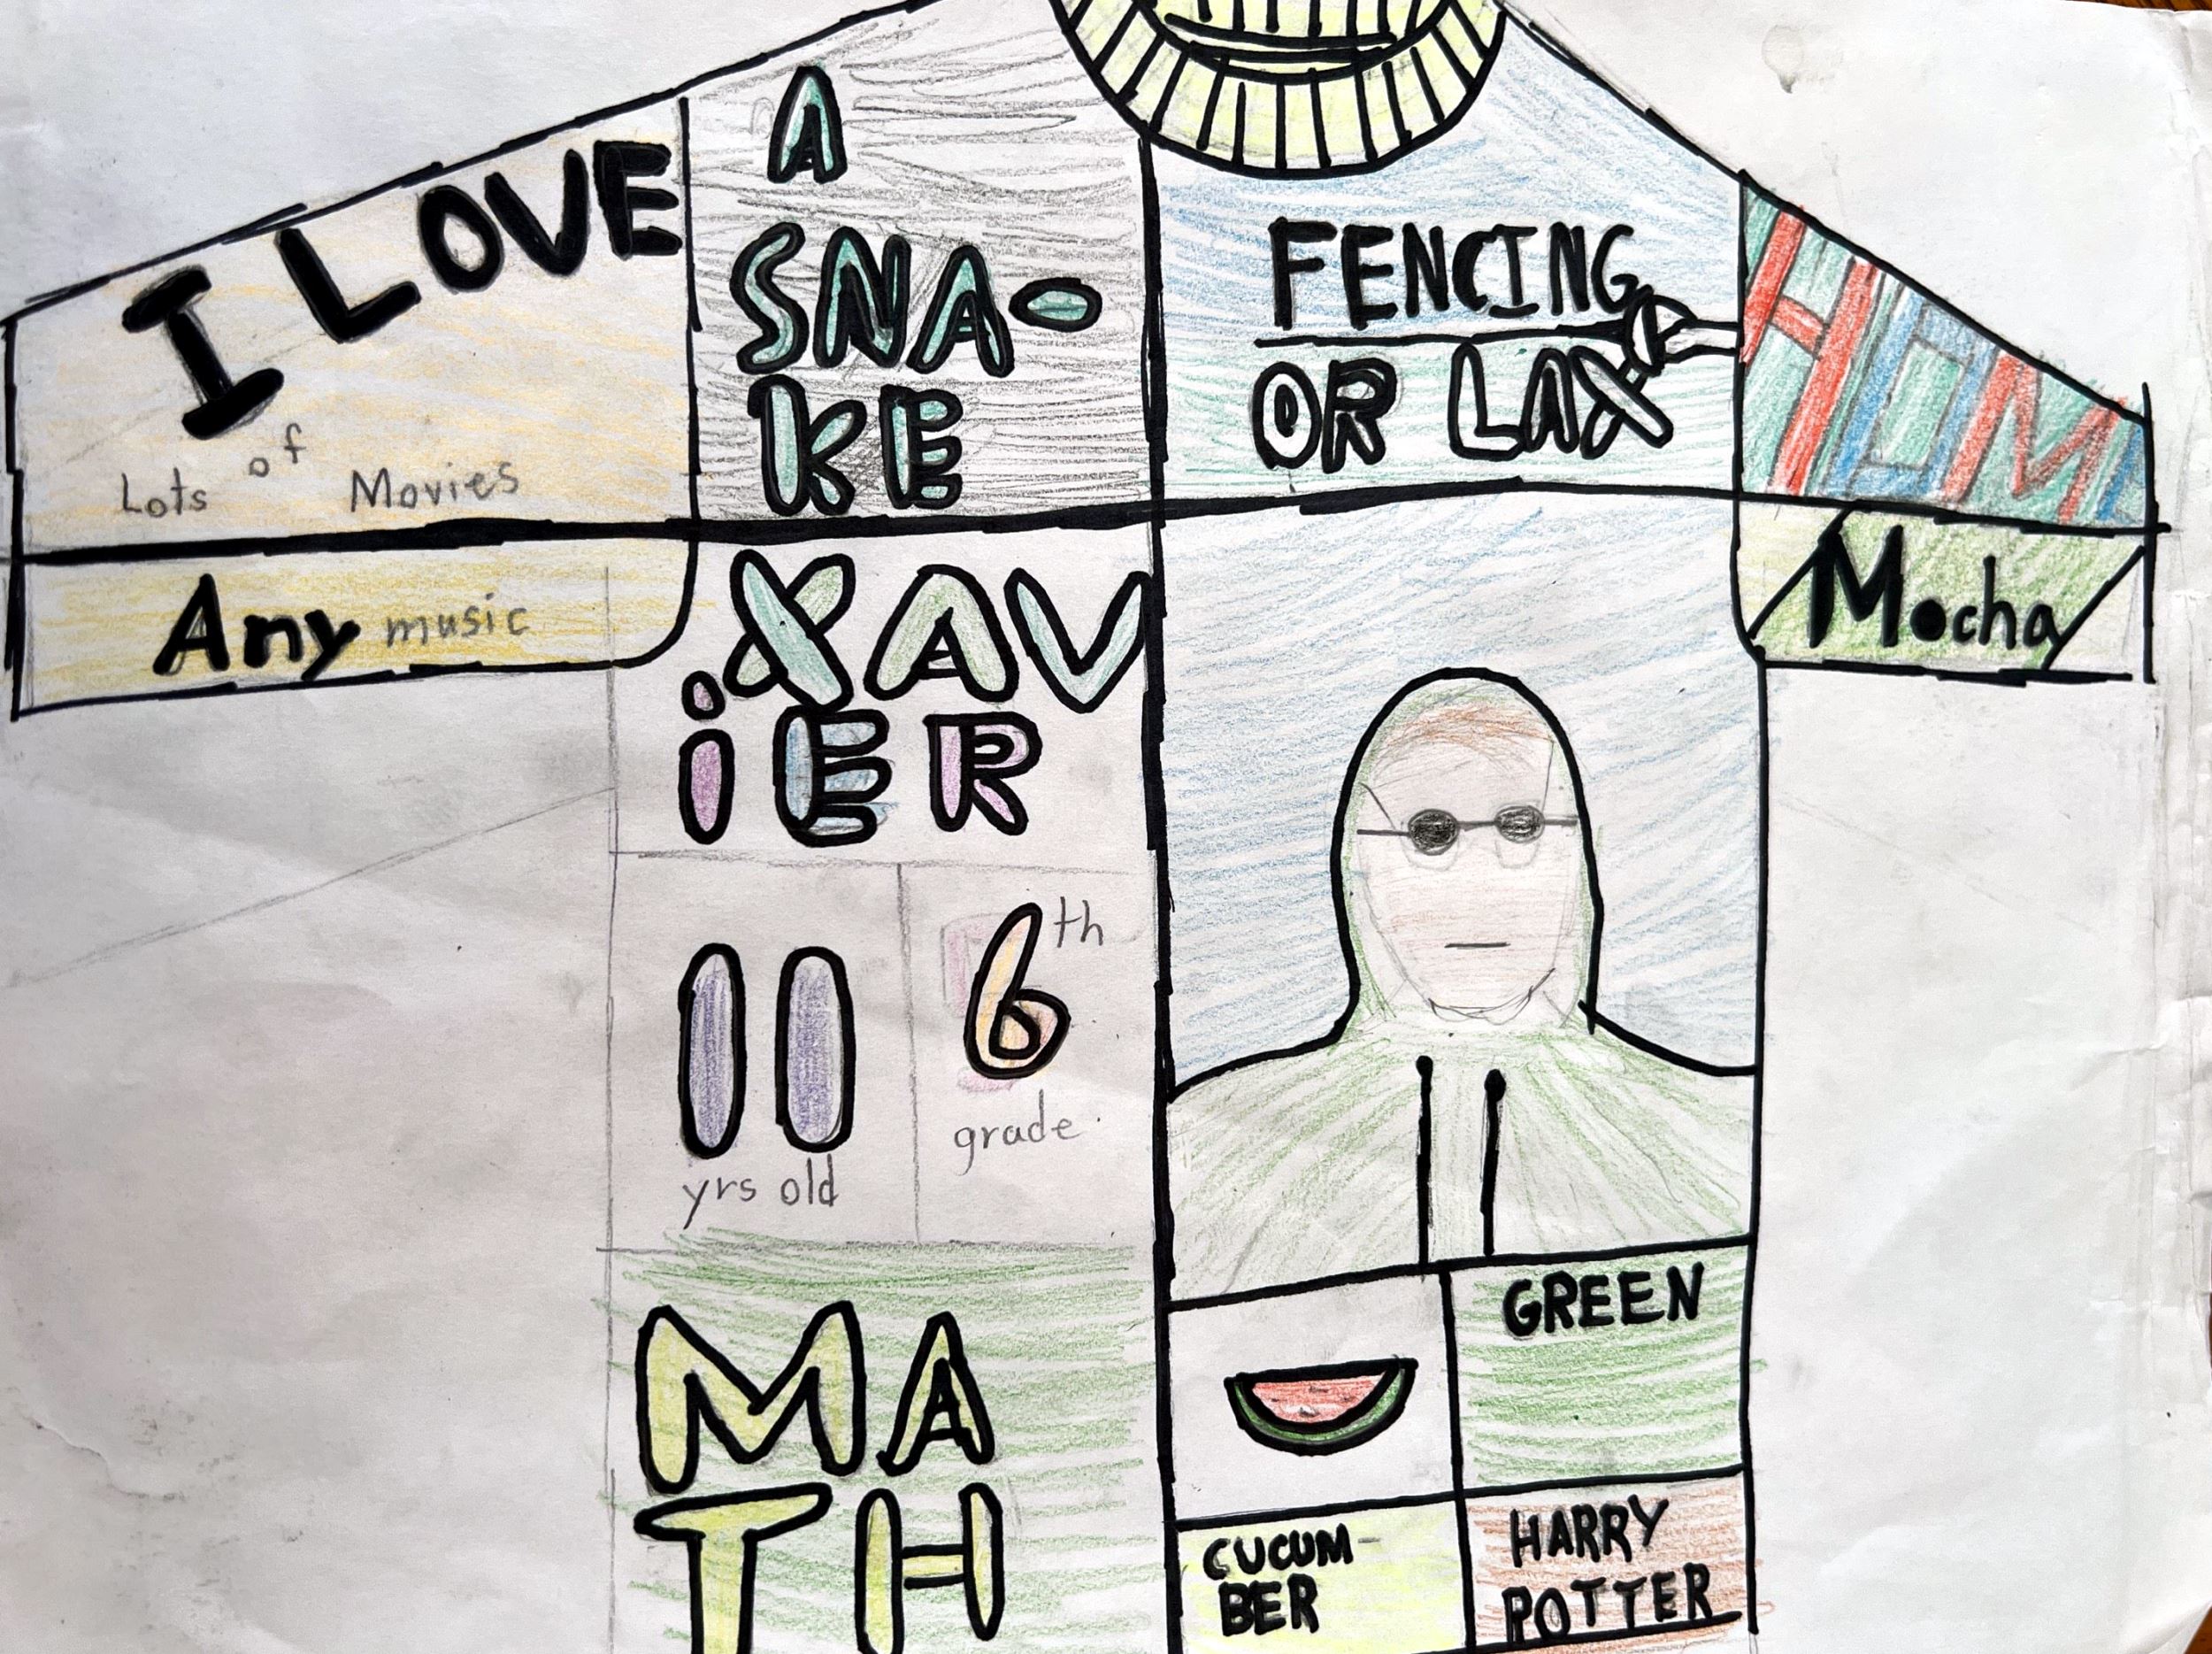 I LOVE
Lots of Movies
Any music
A
SNA-
KE
FENCING
OR LAX
HOME
Mocha
XAV
iER
11
yrs old
6th
grade
MA
TH
GREEN
CUCUM-
BER
HARRY
POTTER